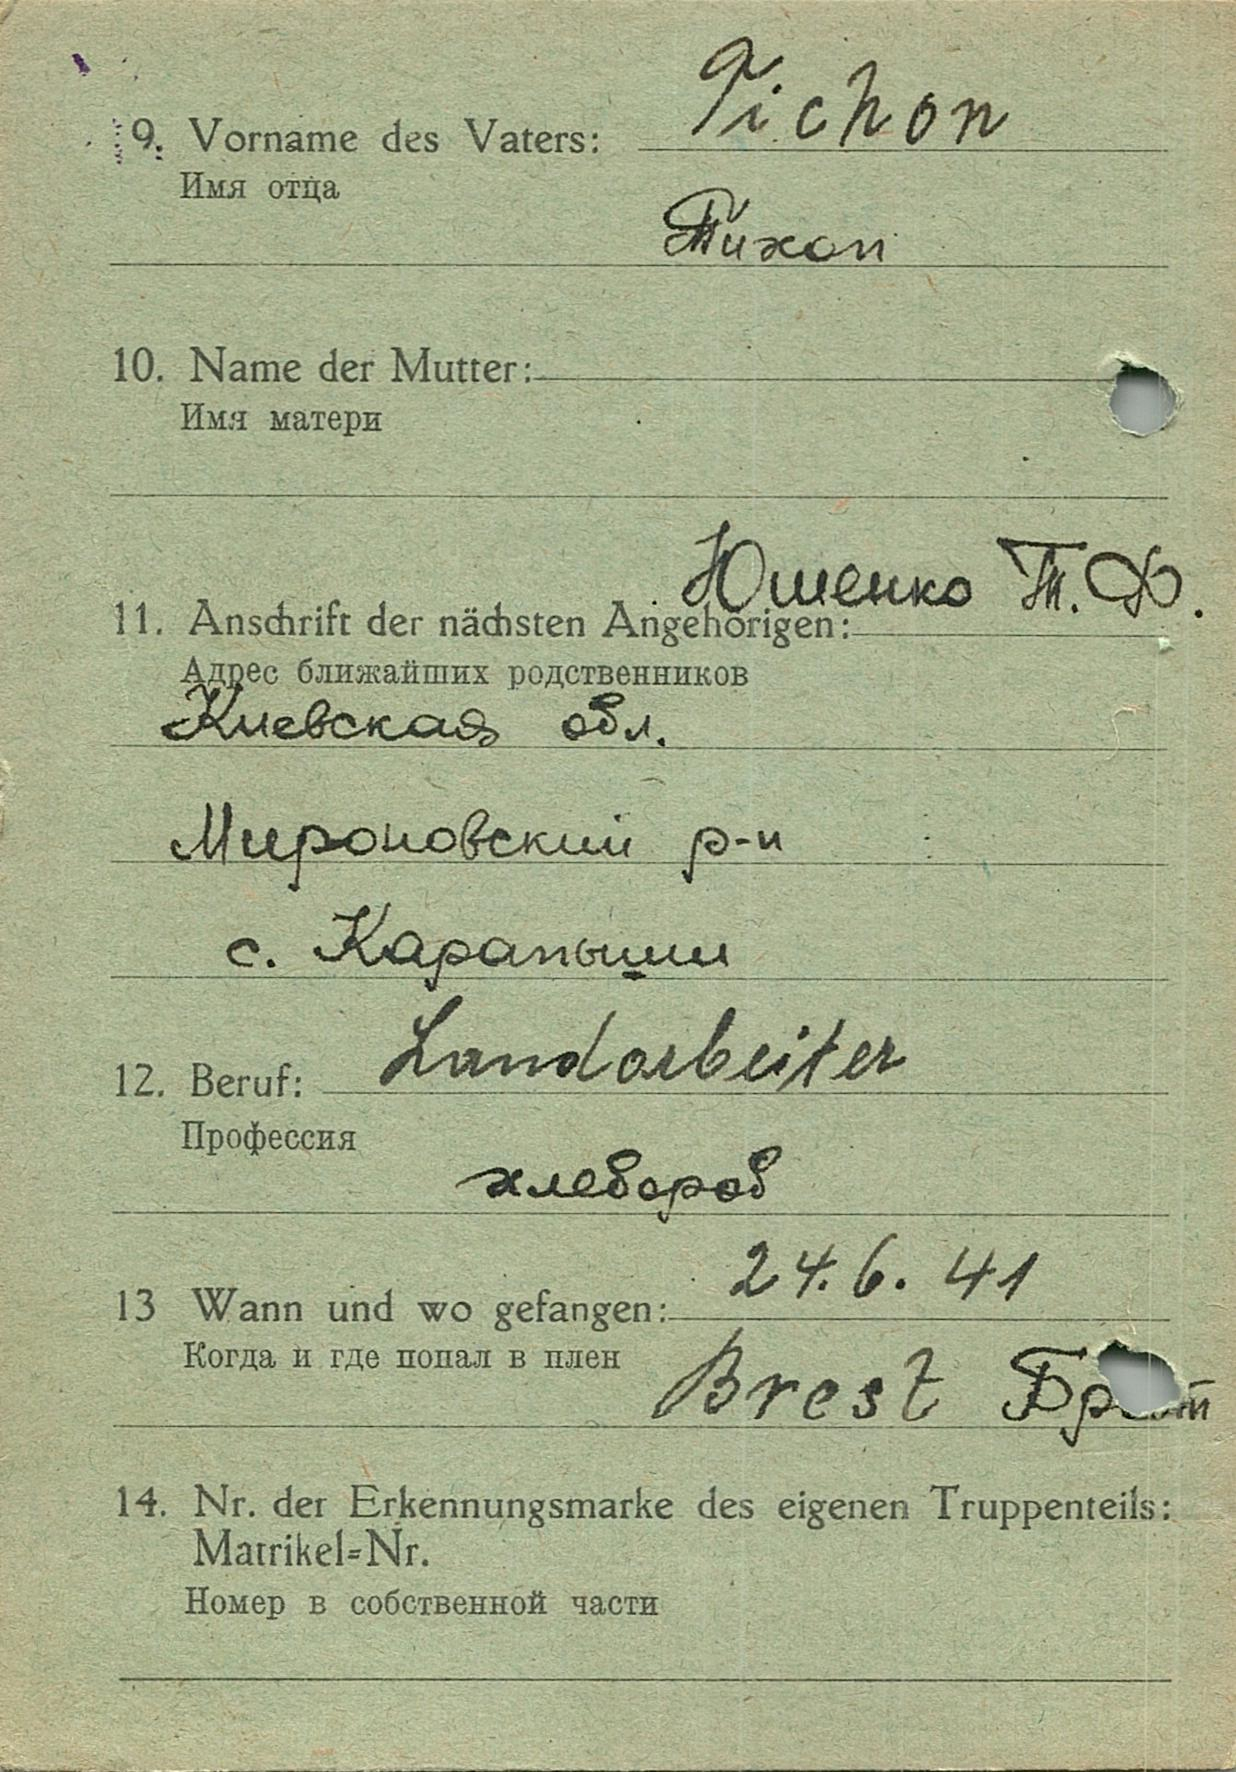 9. Vorname des Vaters: Tichon
Имя отца
Тихон
10. Name der Mutter:
Имя матери
Юшенко Т. Ф.
11. Anschrift der nächsten Angehörigen:
Адрес ближайших родственников
Киевская обл.
Мироновский р-н
с. Карапыши
12. Beruf: Landarbeiter
Профессия
хлебороб
13 Wann und wo gefangen: 24. 6. 41
Когда и где попал в плен
Brest
14. Nr. der Erkennungsmarke des eigenen Truppenteils:
Matrikel=Nr.
Номер в собственной части